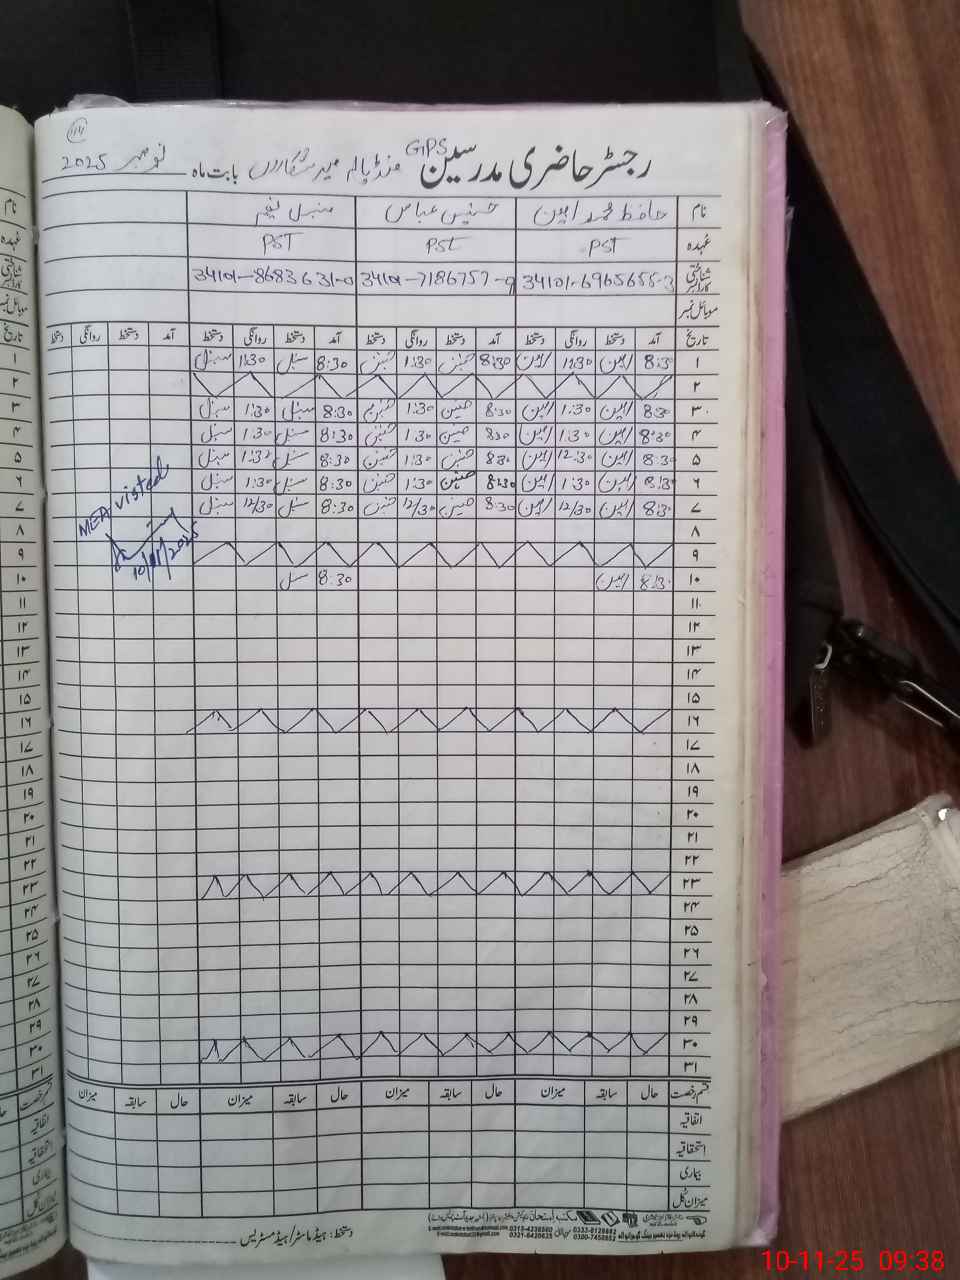 114
رجسٹر حاضری مدرسین GPS منڈیالہ میر شکاراں بابت ماہ نومبر 2025
نام حافظ محمد امین حسنین عباس سنبل نعیم
عہدہ PST PST PST
شناختی کارڈ نمبر 34101-6965655-3 34101-7186757-9 34101-8683631-0
موبائل نمبر
تاریخ آمد دستخط روانگی دستخط آمد دستخط روانگی دستخط آمد دستخط روانگی دستخط آمد دستخط روانگی دستخط
۱ 8:30 امین 1:30 امین 8:30 حسنین 1:30 حسنین 8:30 سنبل 1:30 سنبل
۲
۳ 8:30 امین 1:30 امین 8:30 حسنین 1:30 حسنین 8:30 سنبل 1:30 سنبل
۴ 8:30 امین 1:30 امین 8:30 حسنین 1:30 حسنین 8:30 سنبل 1:30 سنبل
۵ 8:30 امین 12:30 امین 8:30 حسنین 1:30 حسنین 8:30 سنبل 1:30 سنبل
۶ 8:30 امین 1:30 امین 8:30 حسنین 1:30 حسنین 8:30 سنبل 1:30 سنبل
۷ 8:30 امین 12/30 امین 8:30 حسنین 12/30 حسنین 8:30 سنبل 12/30 سنبل
MEA visted
10/11/2025
۸
۹
۱۰ 8:30 امین 8:30 سنبل
۱۱
۱۲
۱۳
۱۴
۱۵
۱۶
۱۷
۱۸
۱۹
۲۰
۲۱
۲۲
۲۳
۲۴
۲۵
۲۶
۲۷
۲۸
۲۹
۳۰
۳۱
قسم رخصت حال سابقہ میزان حال سابقہ میزان حال سابقہ میزان حال سابقہ میزان
اتفاقیہ
استحقاقیہ
بیماری
میزان کل
دستخط: ہیڈ ماسٹر/ہیڈ مسٹریس
10-11-25 09:38